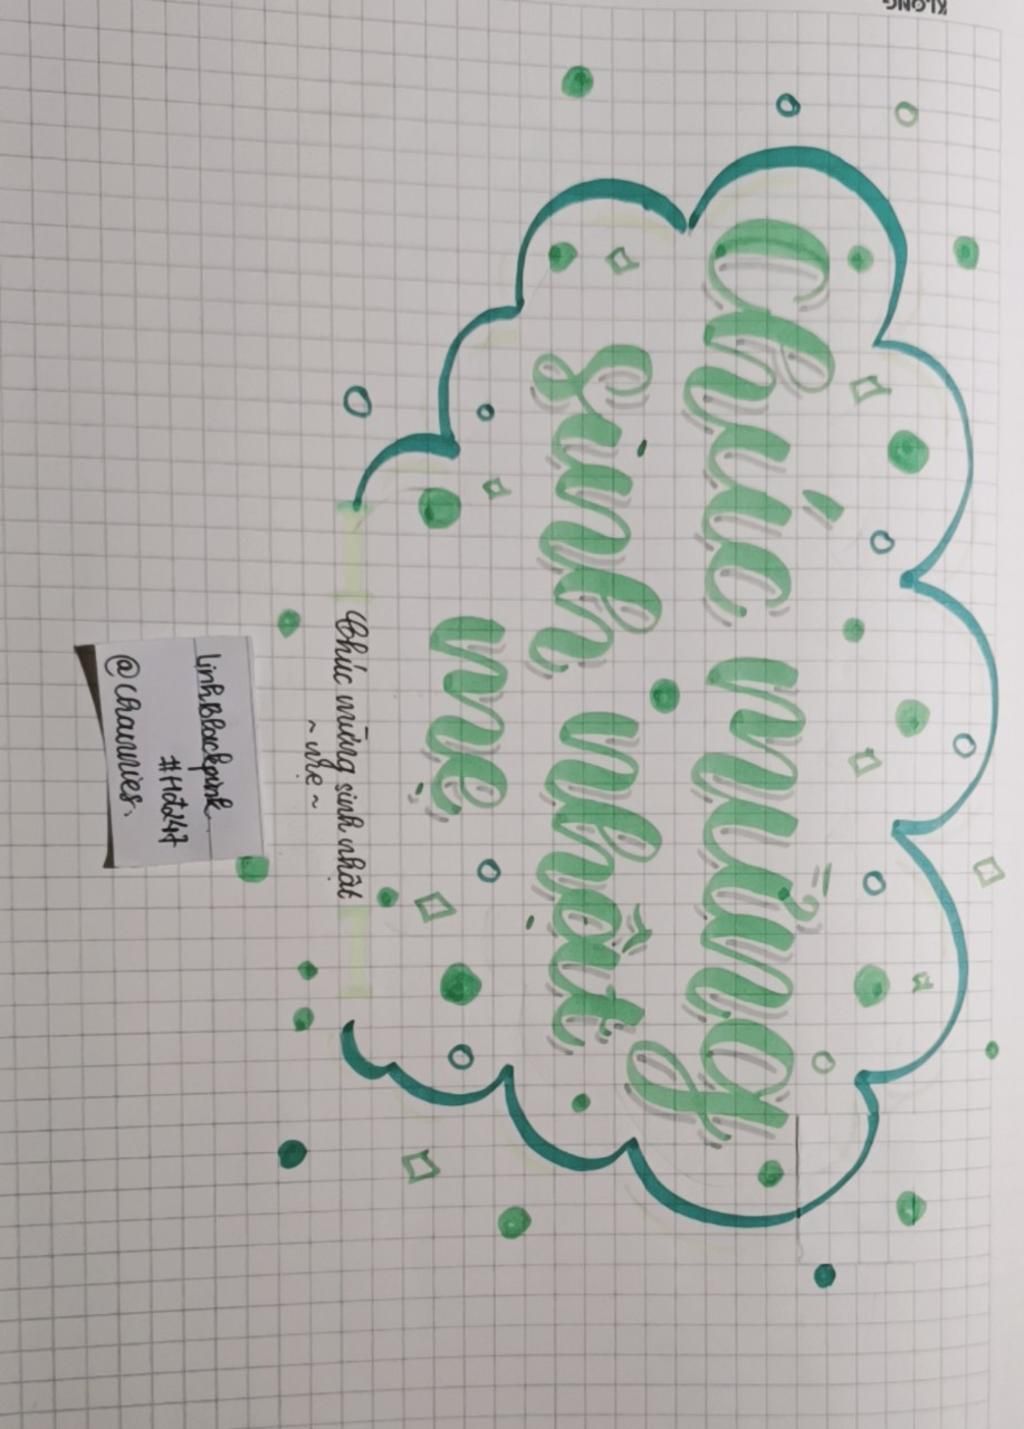 Chúc mừng
sinh nhật
mẹ
Chúc mừng sinh nhật
~ mẹ ~
LinhBlackpink
#Hđ247
@Channies.
KLONG